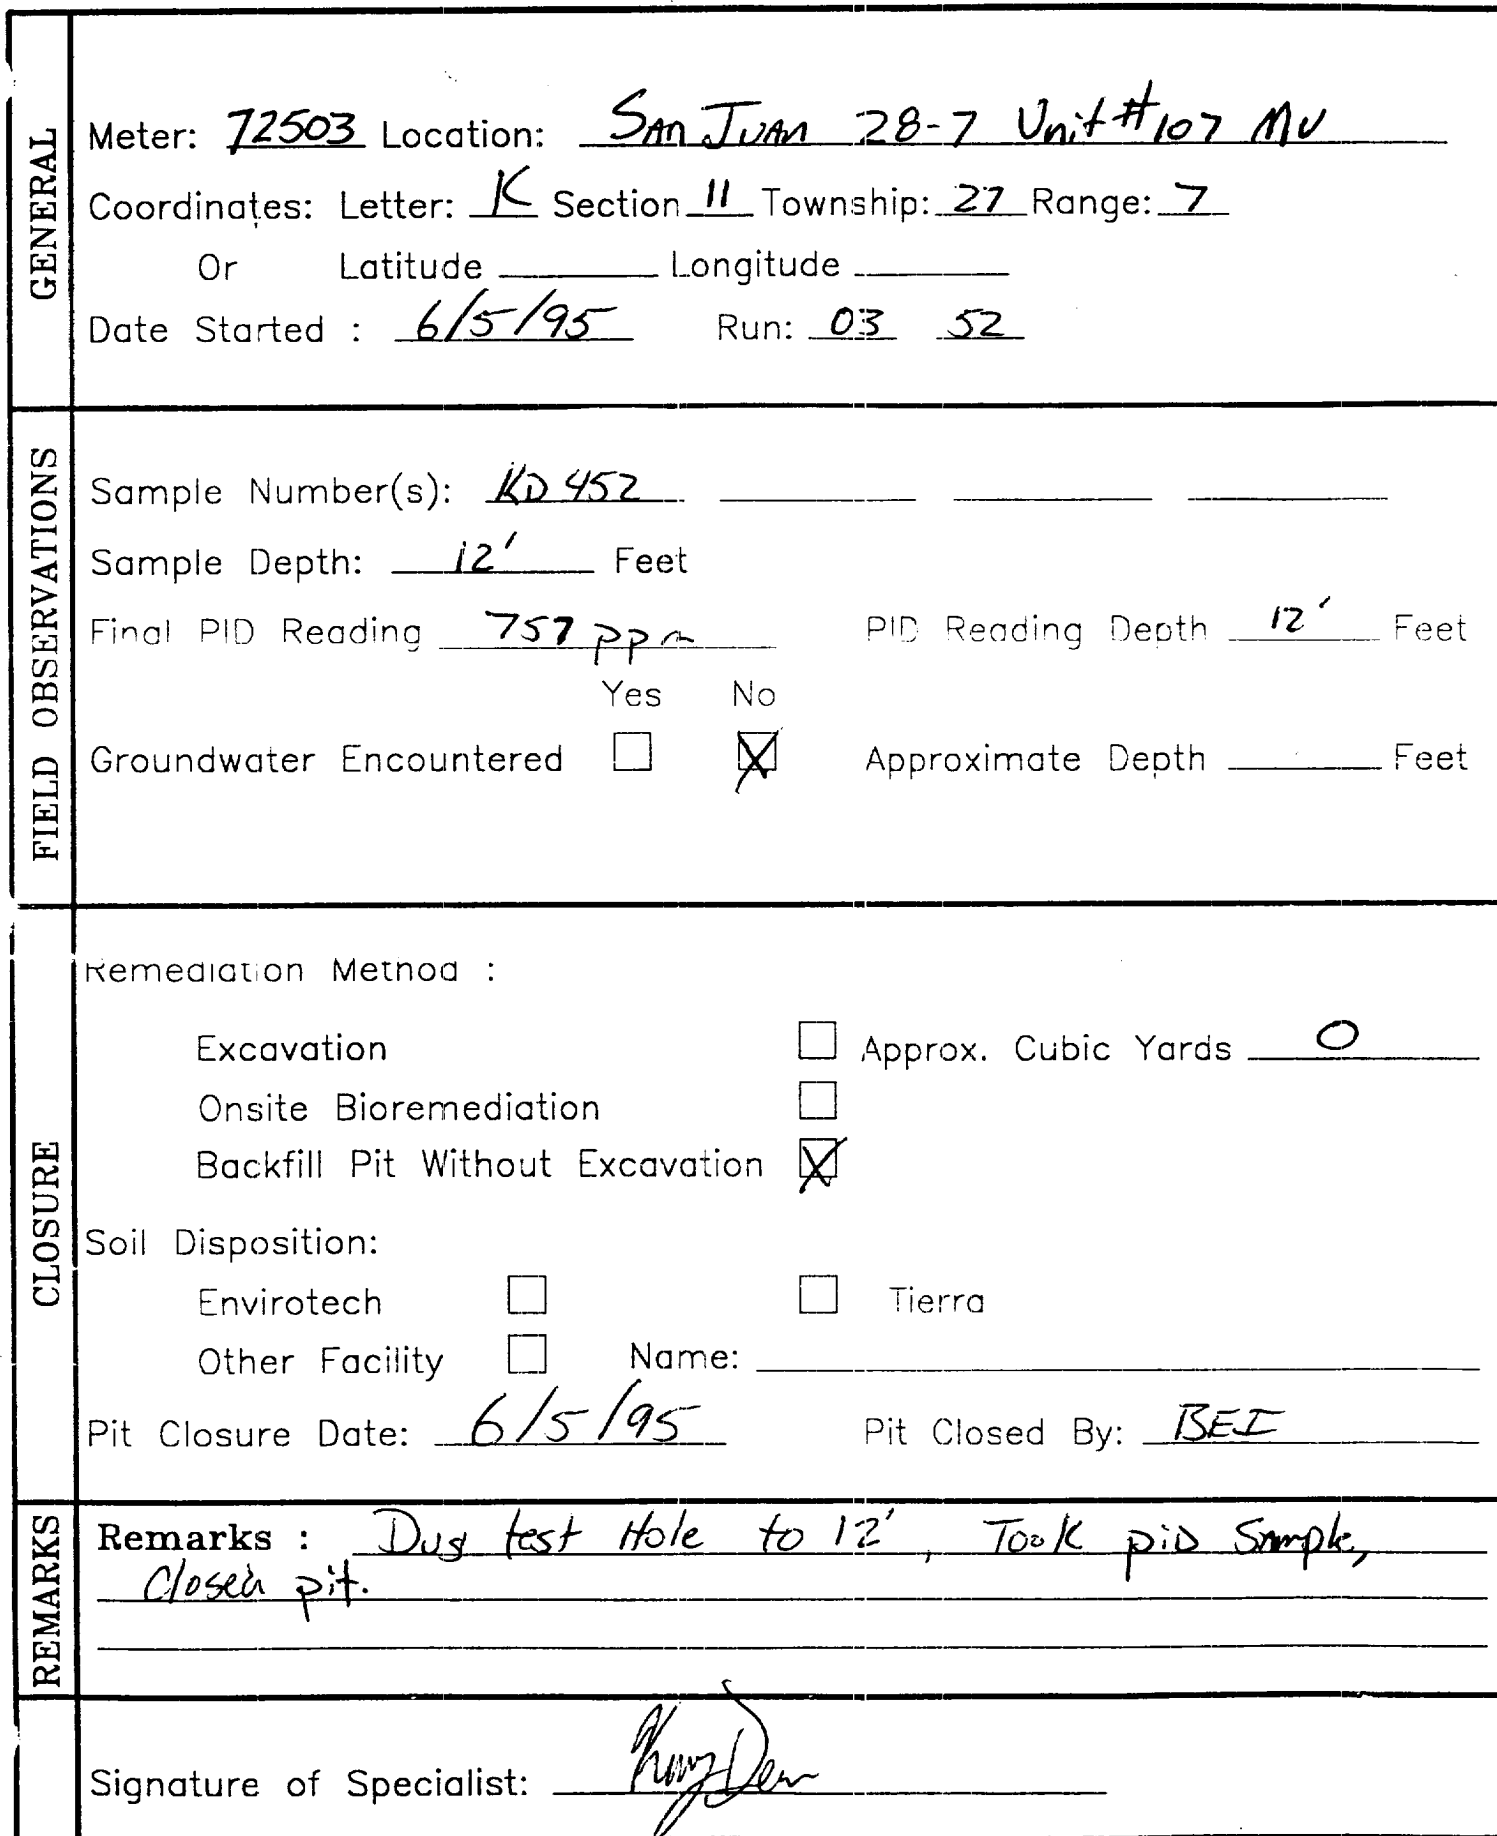 GENERAL
Meter: 72503 Location: SAn JUAn 28-7 Unit #107 MV
Coordinates: Letter: K Section 11 Township: 27 Range: 7
Or Latitude Longitude
Date Started : 6/5/95 Run: 03 52
FIELD OBSERVATIONS
Sample Number(s): KD 452
Sample Depth: 12' Feet
Final PID Reading 757 ppm PID Reading Depth 12' Feet
Yes No
Groundwater Encountered Approximate Depth Feet
CLOSURE
Remediation Method :
Excavation Approx. Cubic Yards 0
Onsite Bioremediation
Backfill Pit Without Excavation
Soil Disposition:
Envirotech Tierra
Other Facility Name:
Pit Closure Date: 6/5/95 Pit Closed By: BEI
REMARKS
Remarks : Dug test Hole to 12', Took pid Sample,
Closed pit.
Signature of Specialist: